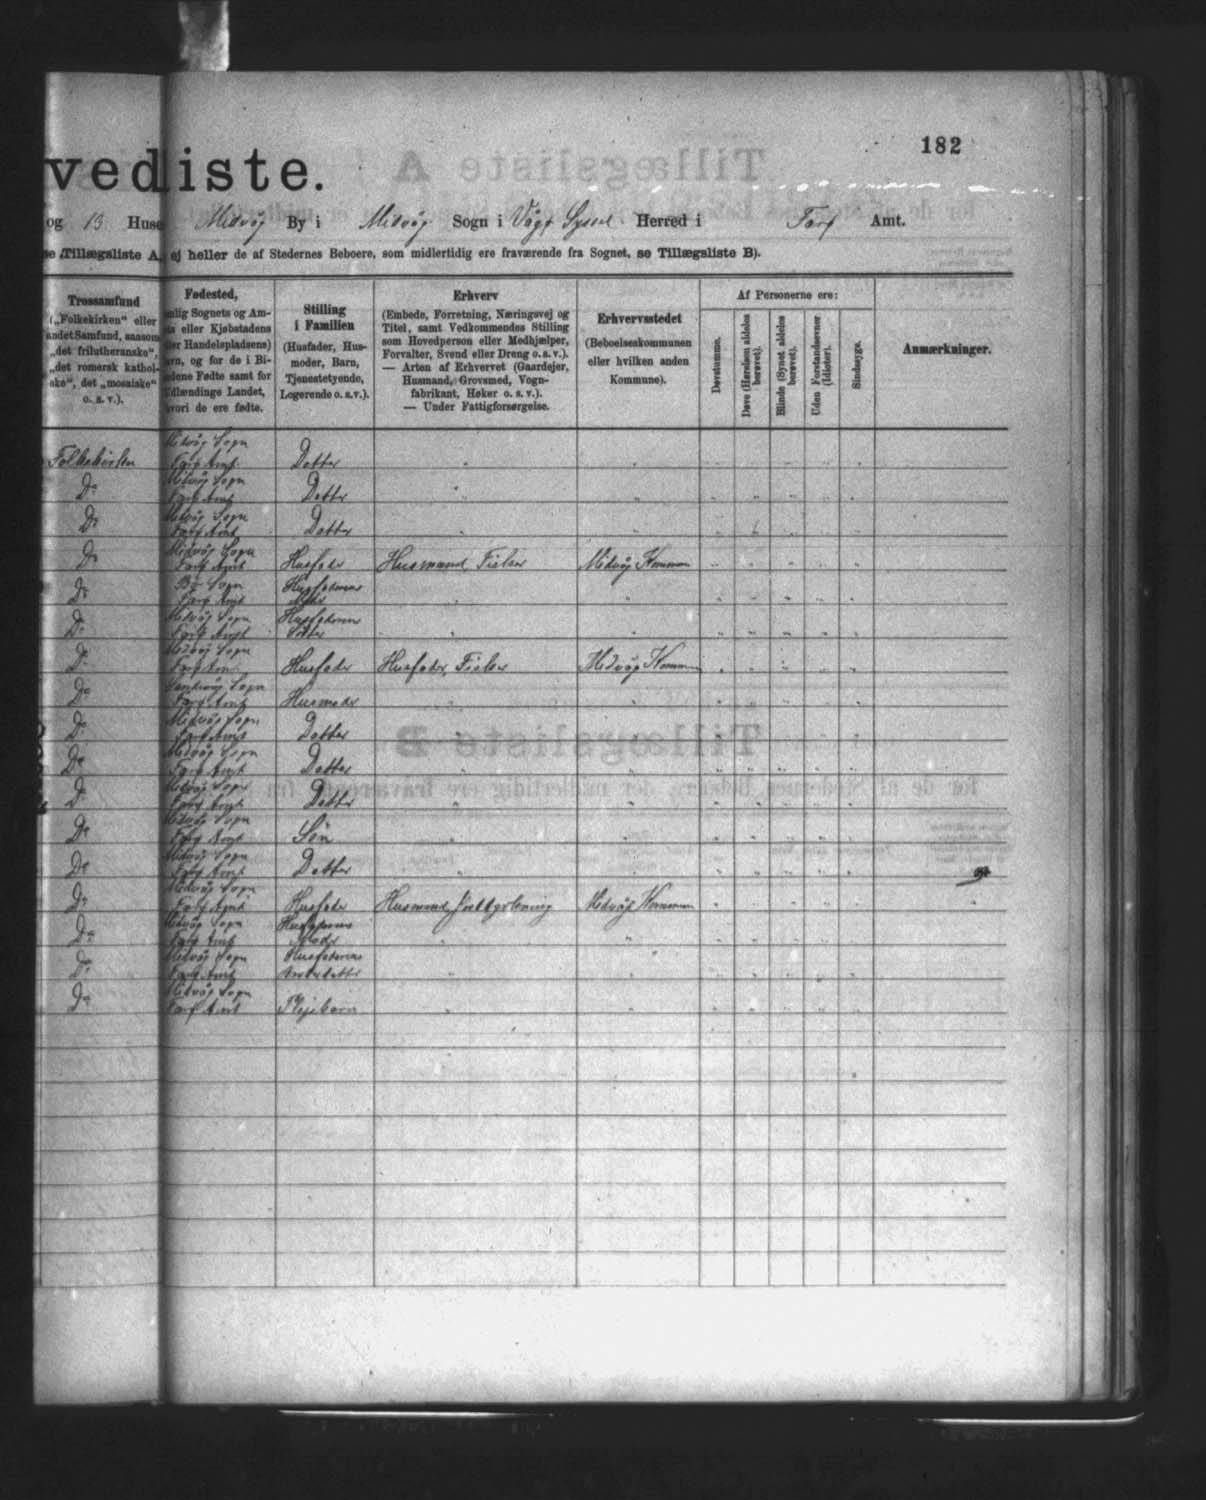 182
vediste.
og 13 Huse Midvåg By i Midvåg Sogn i Vågø Syssel Herred i Færø Amt.
se Tillægsliste A, ej heller de af Stedernes Beboere, som midlertidig ere fraværende fra Sognet, se Tillægsliste B).
Trossamfund
(„Folkekirken“ eller
andet Samfund, saasom
„det frilutheranske“,
„det romersk kathol-
ske“, det „mosaiske“
o. s. v.).
Fødested,
nlig Sognets og Am-
ts eller Kjøbstadens
ler Handelspladsens)
avn, og for de i Bi-
ndene Fødte samt for
dlændinge Landet,
hvori de ere fødte.
Stilling
i Familien
(Husfader, Hus-
moder, Barn,
Tjenestetyende,
Logerende o.s.v.).
Erhverv
(Embede, Forretning, Næringsvej og
Titel, samt Vedkommendes Stilling
som Hovedperson eller Medhjælper,
Forvalter, Svend eller Dreng o.s.v.).
— Arten af Erhvervet (Gaardejer,
Husmand, Grovsmed, Vogn-
fabrikant, Høker o. s. v.).
— Under Fattigforsørgelse.
Erhvervsstedet
(Beboelseskommunen
eller hvilken anden
Kommune).
Af Personerne ere:
Døvstumme.
Døve (Hørelsen aldeles
berøvet).
Blinde (Synet aldeles
berøvet).
Uden Forstandsevner
(Idioter).
Sindssyge.
Anmærkninger.
Midvåg Sogn
Folkekirken Færø Amt. Datter
Midvåg Sogn
Do Færø Amt Datter
Midvåg Sogn
Do Færø Amt Datter
Midvåg Sogn
Do Færø Amt Husfader Husmand, Fisker Midvåg Kommun
Bø Sogn Husfaderens
Do Færø Amt Moder
Midvåg Sogn Husfaderens
Do Færø Amt
Midvåg Sogn
Do Færø Amt Husfader Husfader, Fisker Midvåg Kommun
Sandvåg Sogn
Do Færø Amt Husmoder
Midvåg Sogn
Do Færø Amt Datter
Midvåg Sogn
Do Færø Amt Datter
Midvåg Sogn
Do Færø Amt Datter
Midvåg Sogn
Do Færø Amt Søn
Midvåg Sogn
Do Færø Amt Datter
Midvåg Sogn
Do Færø Amt Husfader Husmand Midvåg Kommun
Midvåg Sogn Husfaderens
Do Færø Amt Moder
Midvåg Sogn Husfaderens
Do Færø Amt
Midvåg Sogn
Do Færø Amt Plejebarn